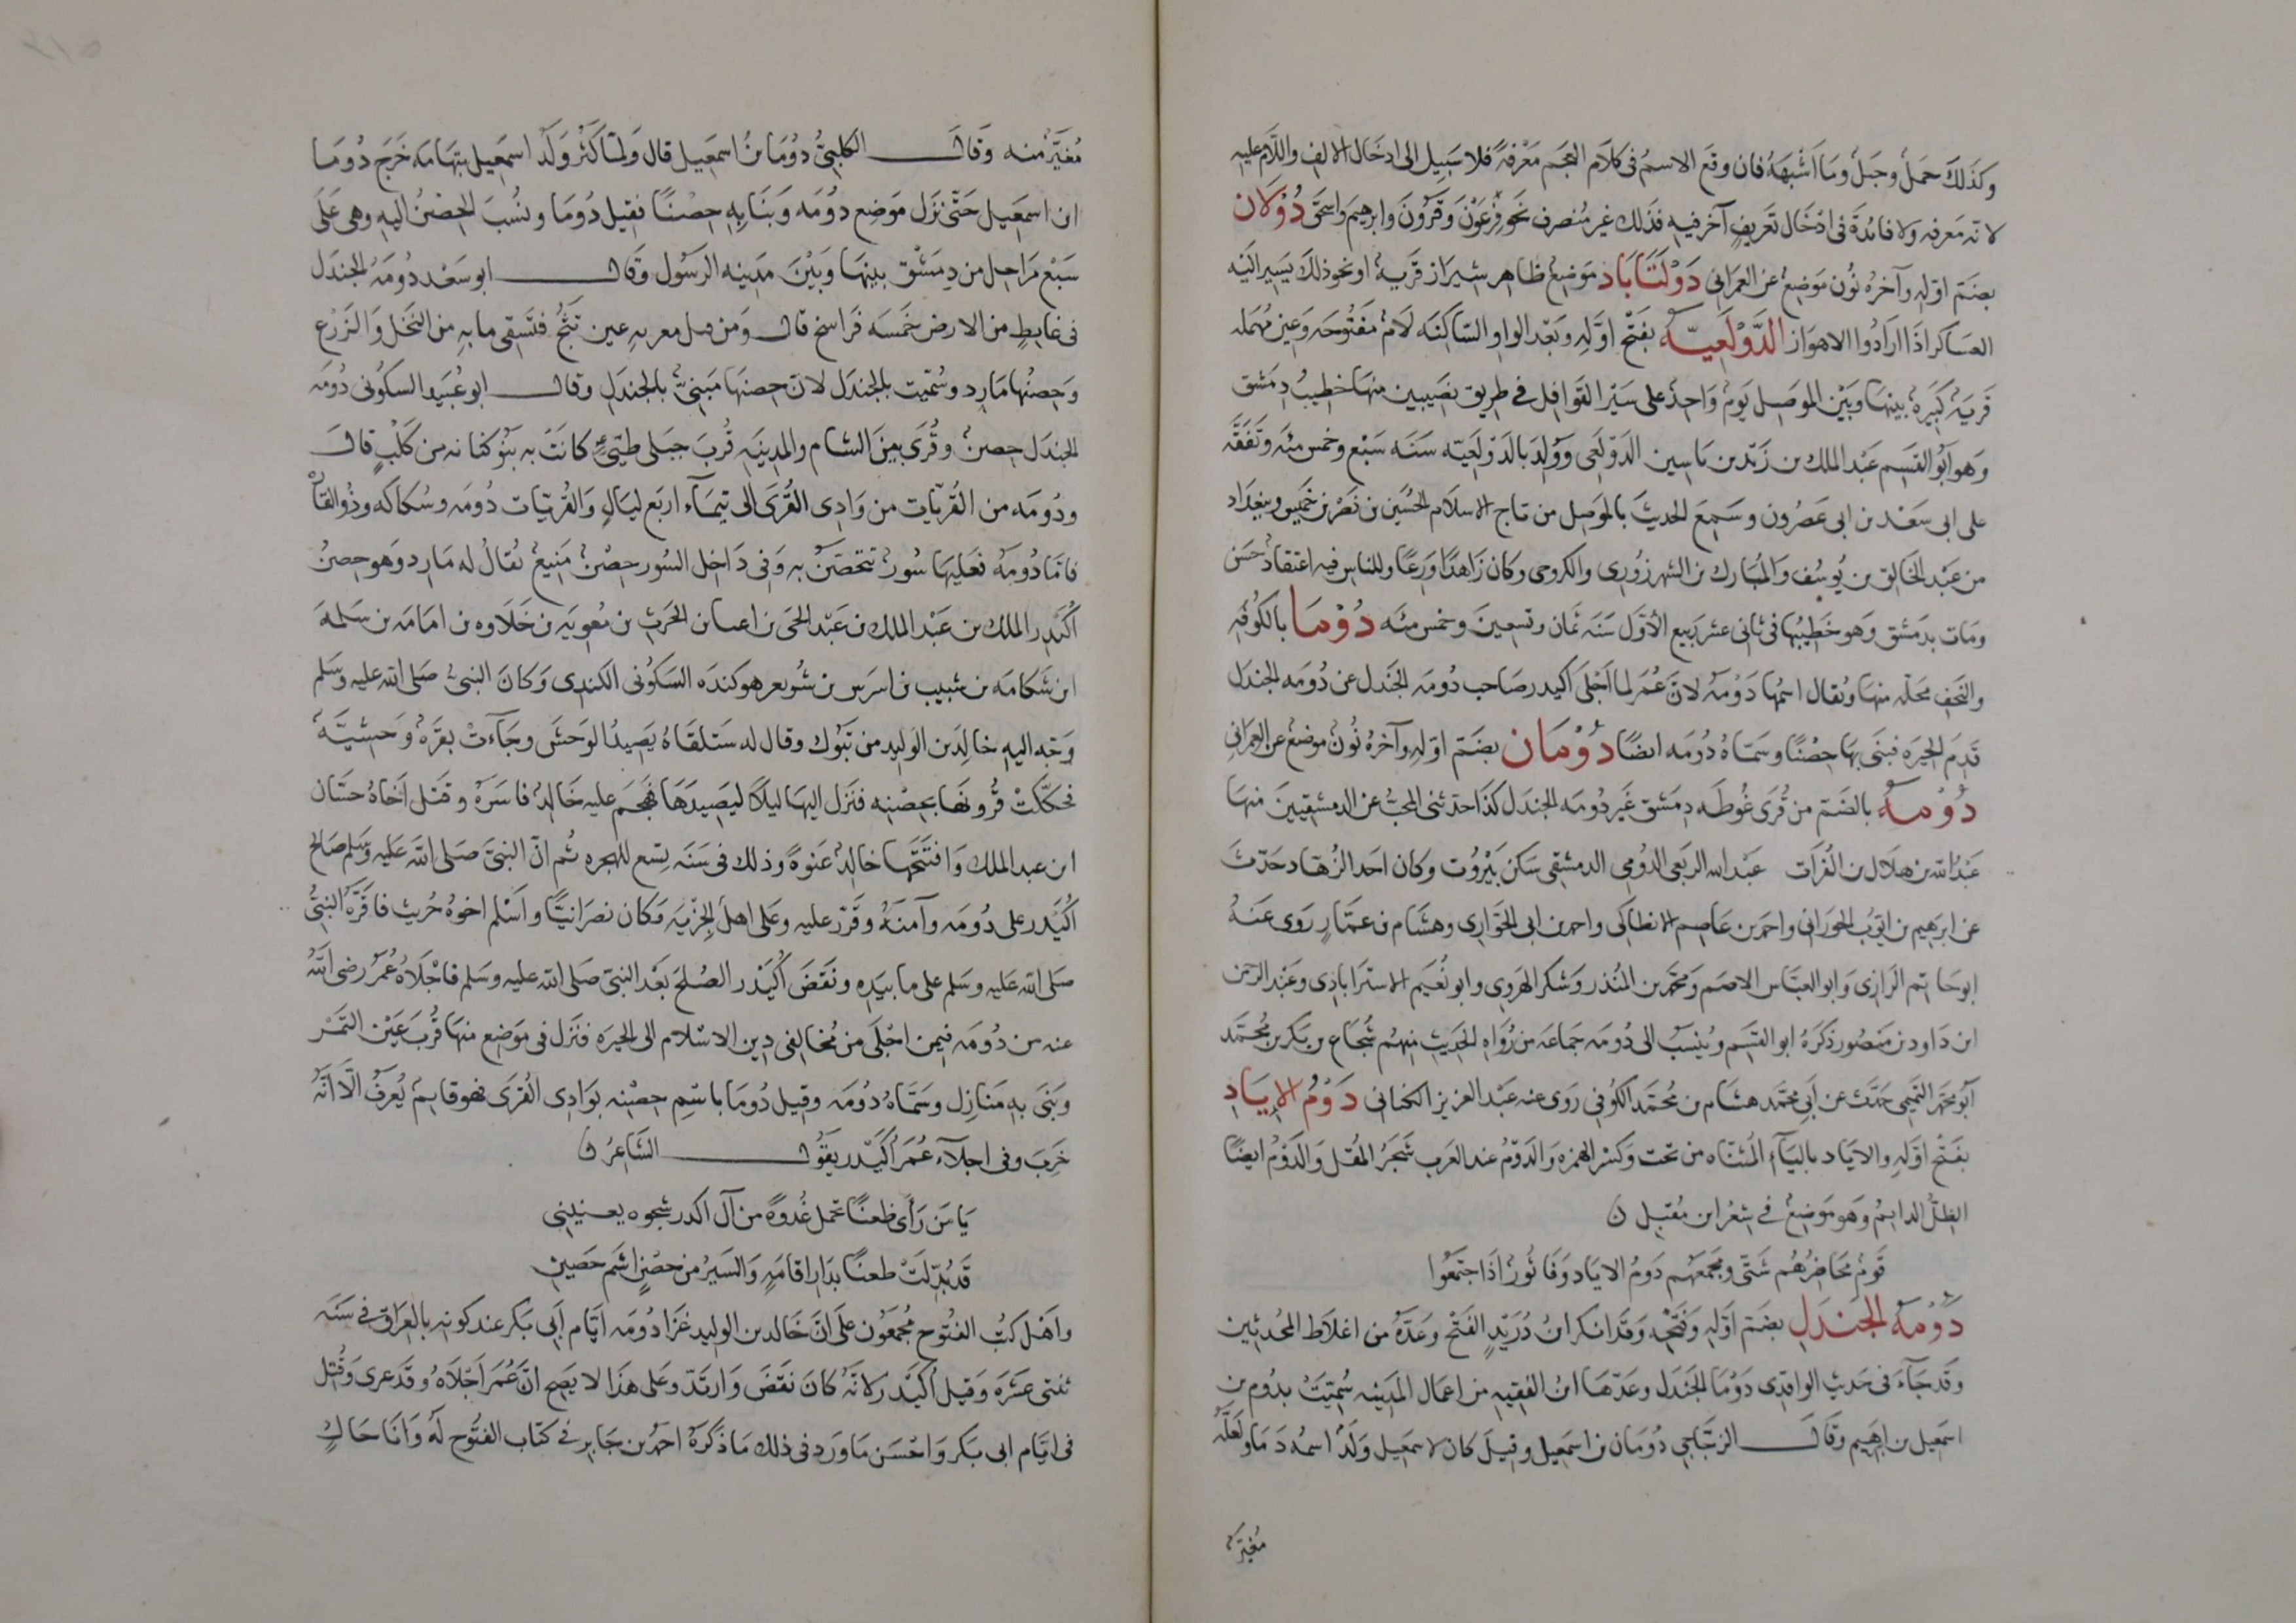 وكذلك حمل وجبل وما اشبهه فان وقع الاسم فى كلام العجم معرفة فلا سبيل الى ادخال الالف واللام عليه
لانه معرفه ولا فائدة فى ادخال تعريف آخر فيه فذلك غير منصرف نحو فرعون وقرون وابرهيم واسحق دُولان
بضم اوله وآخره نون موضع عن العمرانى دَوْلَتَابَاد موضع ظاهر شيراز قرية او نحو ذلك يسير اليه
العساكر اذا ارادوا الاهواز الدَّوْلَعِيّة بفتح اوله وبعد الواو الساكنه لام مفتوحه وعين مهمله
قرية كبيرة بينها وبين الموصل يوم واحد على سير القوافل في طريق نصيبين منها خطيب دمشق
وهو ابو القسم عبد الملك بن زيد بن ياسين الدولعى وولد بالدولعيه سنه سبع وخمس مئه وتفقه
على ابى سعد بن ابى عصرون وسمع الحديث بالموصل من تاج الاسلام الحسين بن نصر بن خميس وببغداد
من عبد الخالق بن يوسف والمبارك بن الشهرزورى والكروخى وكان زاهدا ورعا وللناس فيه اعتقاد حسن
ومات بدمشق وهو خطيبها فى ثانى عشر ربيع الاول سنه ثمان وتسعين وخمس مئه دُوْمَا بالكوفه
والنجف محلة منها ويقال اسمها دومه لان عمر لما اجلى اكيدر صاحب دومه الجندل عن دومه الجندل
قدم الحيره فبنى بها حصنا وسماه دومه ايضا دُوْمَان بضم اوله وآخره نون موضع عن العمرانى
دُوْمَة بالضم من قرى غوطه دمشق غير دومه الجندل كذا حدثنى المحب عن الدمشقيين منها
عبد الله بن هلال بن الفرات عبد الله الربعى الدومى الدمشقى سكن بيروت وكان احد الزهاد حدث
عن ابرهيم بن ايوب الحورانى واحمد بن عاصم الانطاكى واحمد بن ابى الحوارى وهشام بن عمار روى عنه
ابو حاتم الرازى وابو العباس الاصم ومحمد بن المنذر وشكر الهروى وابو نعيم الاستراباذى وعبد الرحمن
ابن داود بن منصور ذكره ابو القسم وينسب الى دومه جماعه من رواه الحديث منهم شجاع بن بكر بن محمد
ابو محمد التميمى حدث عن ابى محمد هشام بن محمد الكوفى روى عنه عبد العزيز الكنانى دَوْمُ الإيَاد
بفتح اوله والاياد بالياء المثناه من تحت وكسر الهمزه والدوم عند العرب شجر المقل والدوم ايضا
الظل الدايم وهو موضع في شعر ابن مقبل ن
قوم محاضرهم شتى ومجمعهم دوم الاياد وفاثور اذا اجتمعوا
دُوْمَة الجَنْدَلِ بضم اوله وفتحه وقد انكر ابن دريد الفتح وعده من اغلاط المحدثين
وقد جاء فى حديث الواقدى دوما الجندل وعدها ابن الفقيه من اعمال المدينه سميت بدوم بن
اسمعيل بن ابرهيم وقال الزجاجي دومان بن اسمعيل وقيل كان لاسمعيل ولد اسمه دما ولعله
مُغيّر
مغير منه وقال الكلبى دوما بن اسمعيل قال ولما كثر ولد اسمعيل بتهامه خرج دوما
ابن اسمعيل حتى نزل موضع دومه وبنا به حصنا فقيل دوما ونسب الحصن اليه وهى على
سبع مراحل من دمشق بينها وبين مدينه الرسول وقال ابو سعد دومه الجندل
فى غايط من الارض خمسه فراسخ قال ومن معربه عين تثج فتسقى ما به من النخل والزرع
وحصنها مارد وسميت بالجندل لان حصنها مبنى بالجندل وقال ابو عبيد السكونى دومه
الجندل حصن وقرى بين الشام والمدينه قرب جبلى طيئ كانت به بنو كنانه من كلب قال
ودومه من القريات من وادى القرى الى تيماء اربع ليال والقريات دومه وسكاكه وذو القاره
فاما دومه فعليها سور تتحصن به وفى داخل السور حصن منيع يقال له مارد وهو حصن
اكيدر الملك بن عبد الملك بن عبد الحى بن اعيا بن الحرث بن معويه بن خلاوه بن امامه بن سلمه
ابن شكامه بن شبيب بن اسرس بن ثور هو كنده السكونى الكندى وكان النبى صلى الله عليه وسلم
وجه اليه خالد بن الوليد من تبوك وقال له ستلقاه يصيد الوحش وجآءت بقره وحشيه
فحككت قرونها بحصنه فنزل اليها ليلا ليصيدها فهجم عليه خالد فاسره وقتل اخاه حسان
ابن عبد الملك وافتتحها خالد عنوة وذلك فى سنه تسع للهجره ثم ان النبى صلى الله عليه وسلم صالح
اكيدر على دومه وآمنه وقرر عليه وعلى اهله الجزيه وكان نصرانيا واسلم اخوه حريث فاقره النبى
صلى الله عليه وسلم على ما بيده ونقض اكيدر الصلح بعد النبى صلى الله عليه وسلم فاجلاه عمر رضى الله
عنه من دومه فيمن اجلى من مخالفى دين الاسلام الى الحيره فنزل فى موضع منها قرب عين التمر
وبنى به منازل وسماه دومه وقيل دوما باسم حصنه بوادى القرى فهو قايم يعرف الا انه
خرب وفى اجلآء عمر اكيدر يقول الشاعر ن
يا من رأى ظعنا تحمل غدوة من آل اكدر شجوه يعنينى
قد بدلت ظعنا بدار اقامة والسير من حصن اشم حصين
واهل كتب الفتوح مجمعون على ان خالد بن الوليد غزا دومه ايام ابى بكر عند كونه بالعراق في سنه
ثنتى عشره وقيل اكيدر لانه كان نقض وارتد وعلى هذا لا يصح ان عمر اجلاه وقد غزى وقتل
فى ايام ابى بكر واحسن ما ورد فى ذلك ما ذكره احمد بن جابر في كتاب الفتوح له وانا حاك